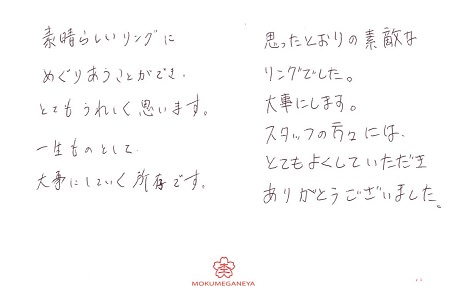 素晴らしいリングに
めぐりあうことができ、
とてもうれしく思います。
一生ものとして
大事にしていく所存です。
思ったとおりの素敵な
リングでした。
大事にします。
スタッフの方々には、
とてもよくしていただき
ありがとうございました。
MOKUMEGANEYA